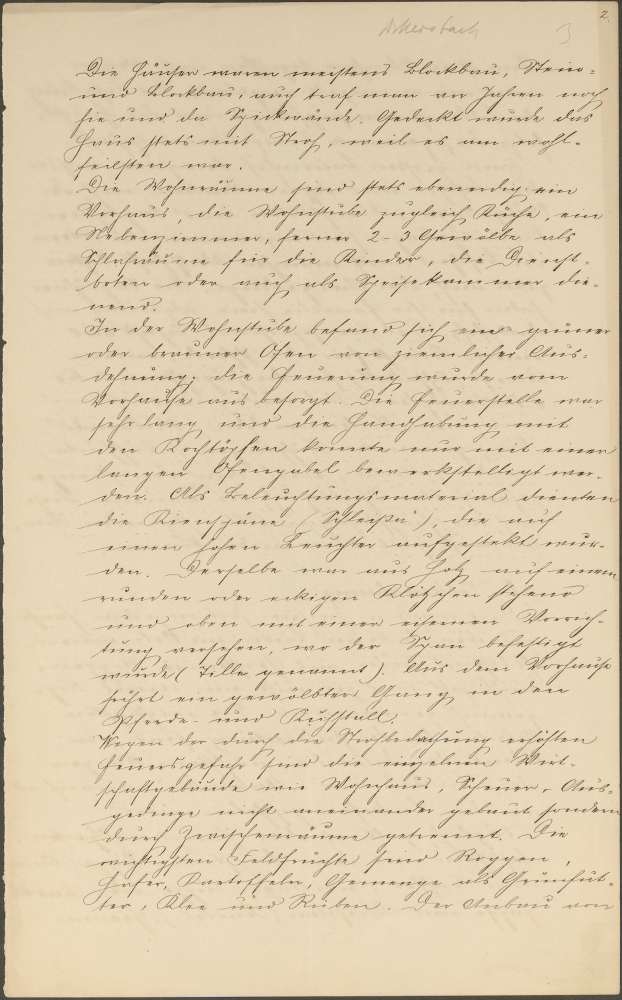 2.
3
Die Häuser waren meistens Blockbau, Stein=
und Blockbau, auch traf man vor Jahren noch
hie und da Speckwände. Gedeckt wurde das
Haus stets mit Stroh, weil es am wohl-
feilsten war.
Die Wohnräume sind stets ebenerdig: ein
Vorhaus, die Wohnstube zugleich Küche, ein
Nebenzimmer, ferner 2-3 Gewölbe als
Schlafräume für die Kinder, die Dienst-
boten oder auch als Speisekammer die-
nend.
In der Wohnstube befand sich ein grüner
oder brauner Ofen von ziemlicher Aus=
dehnung; die Feuerung wurde vom
Vorhause aus besorgt. Die Feuerstelle war
sehr lang und die Handhabung mit
den Kochtöpfen konnte nur mit einer
langen Ofengabel bewerkstelligt wer-
den. Als Beleuchtungsmaterial dienten
die Kienspäne (Schleißn), die auf
einen hohen Leuchter aufgesteckt wur-
den. Derselbe war aus Holz auf einem
runden oder eckigen Klötzchen stehend
und oben mit einer eisernen Vorrich-
tung versehen, wo der Span befestigt
wurde (Tille genannt). Aus dem Vorhause
führt ein gewölbter Gang in den
Pferde- und Kuhstall.
Wegen der durch die Strohbedachung erhöhten
Feuersgefahr sind die einzelnen Wirt-
schaftgebäude wie Wohnhaus, Scheuer, Aus-
gedinge nicht aneinander gebaut sondern
durch Zwischenräume getrennt. Die
wichtigsten Feldfrüchte sind Roggen,
Hafer, Kartoffeln, Gemenge als Grünfut-
ter, Klee und Rüben. Der Anbau von